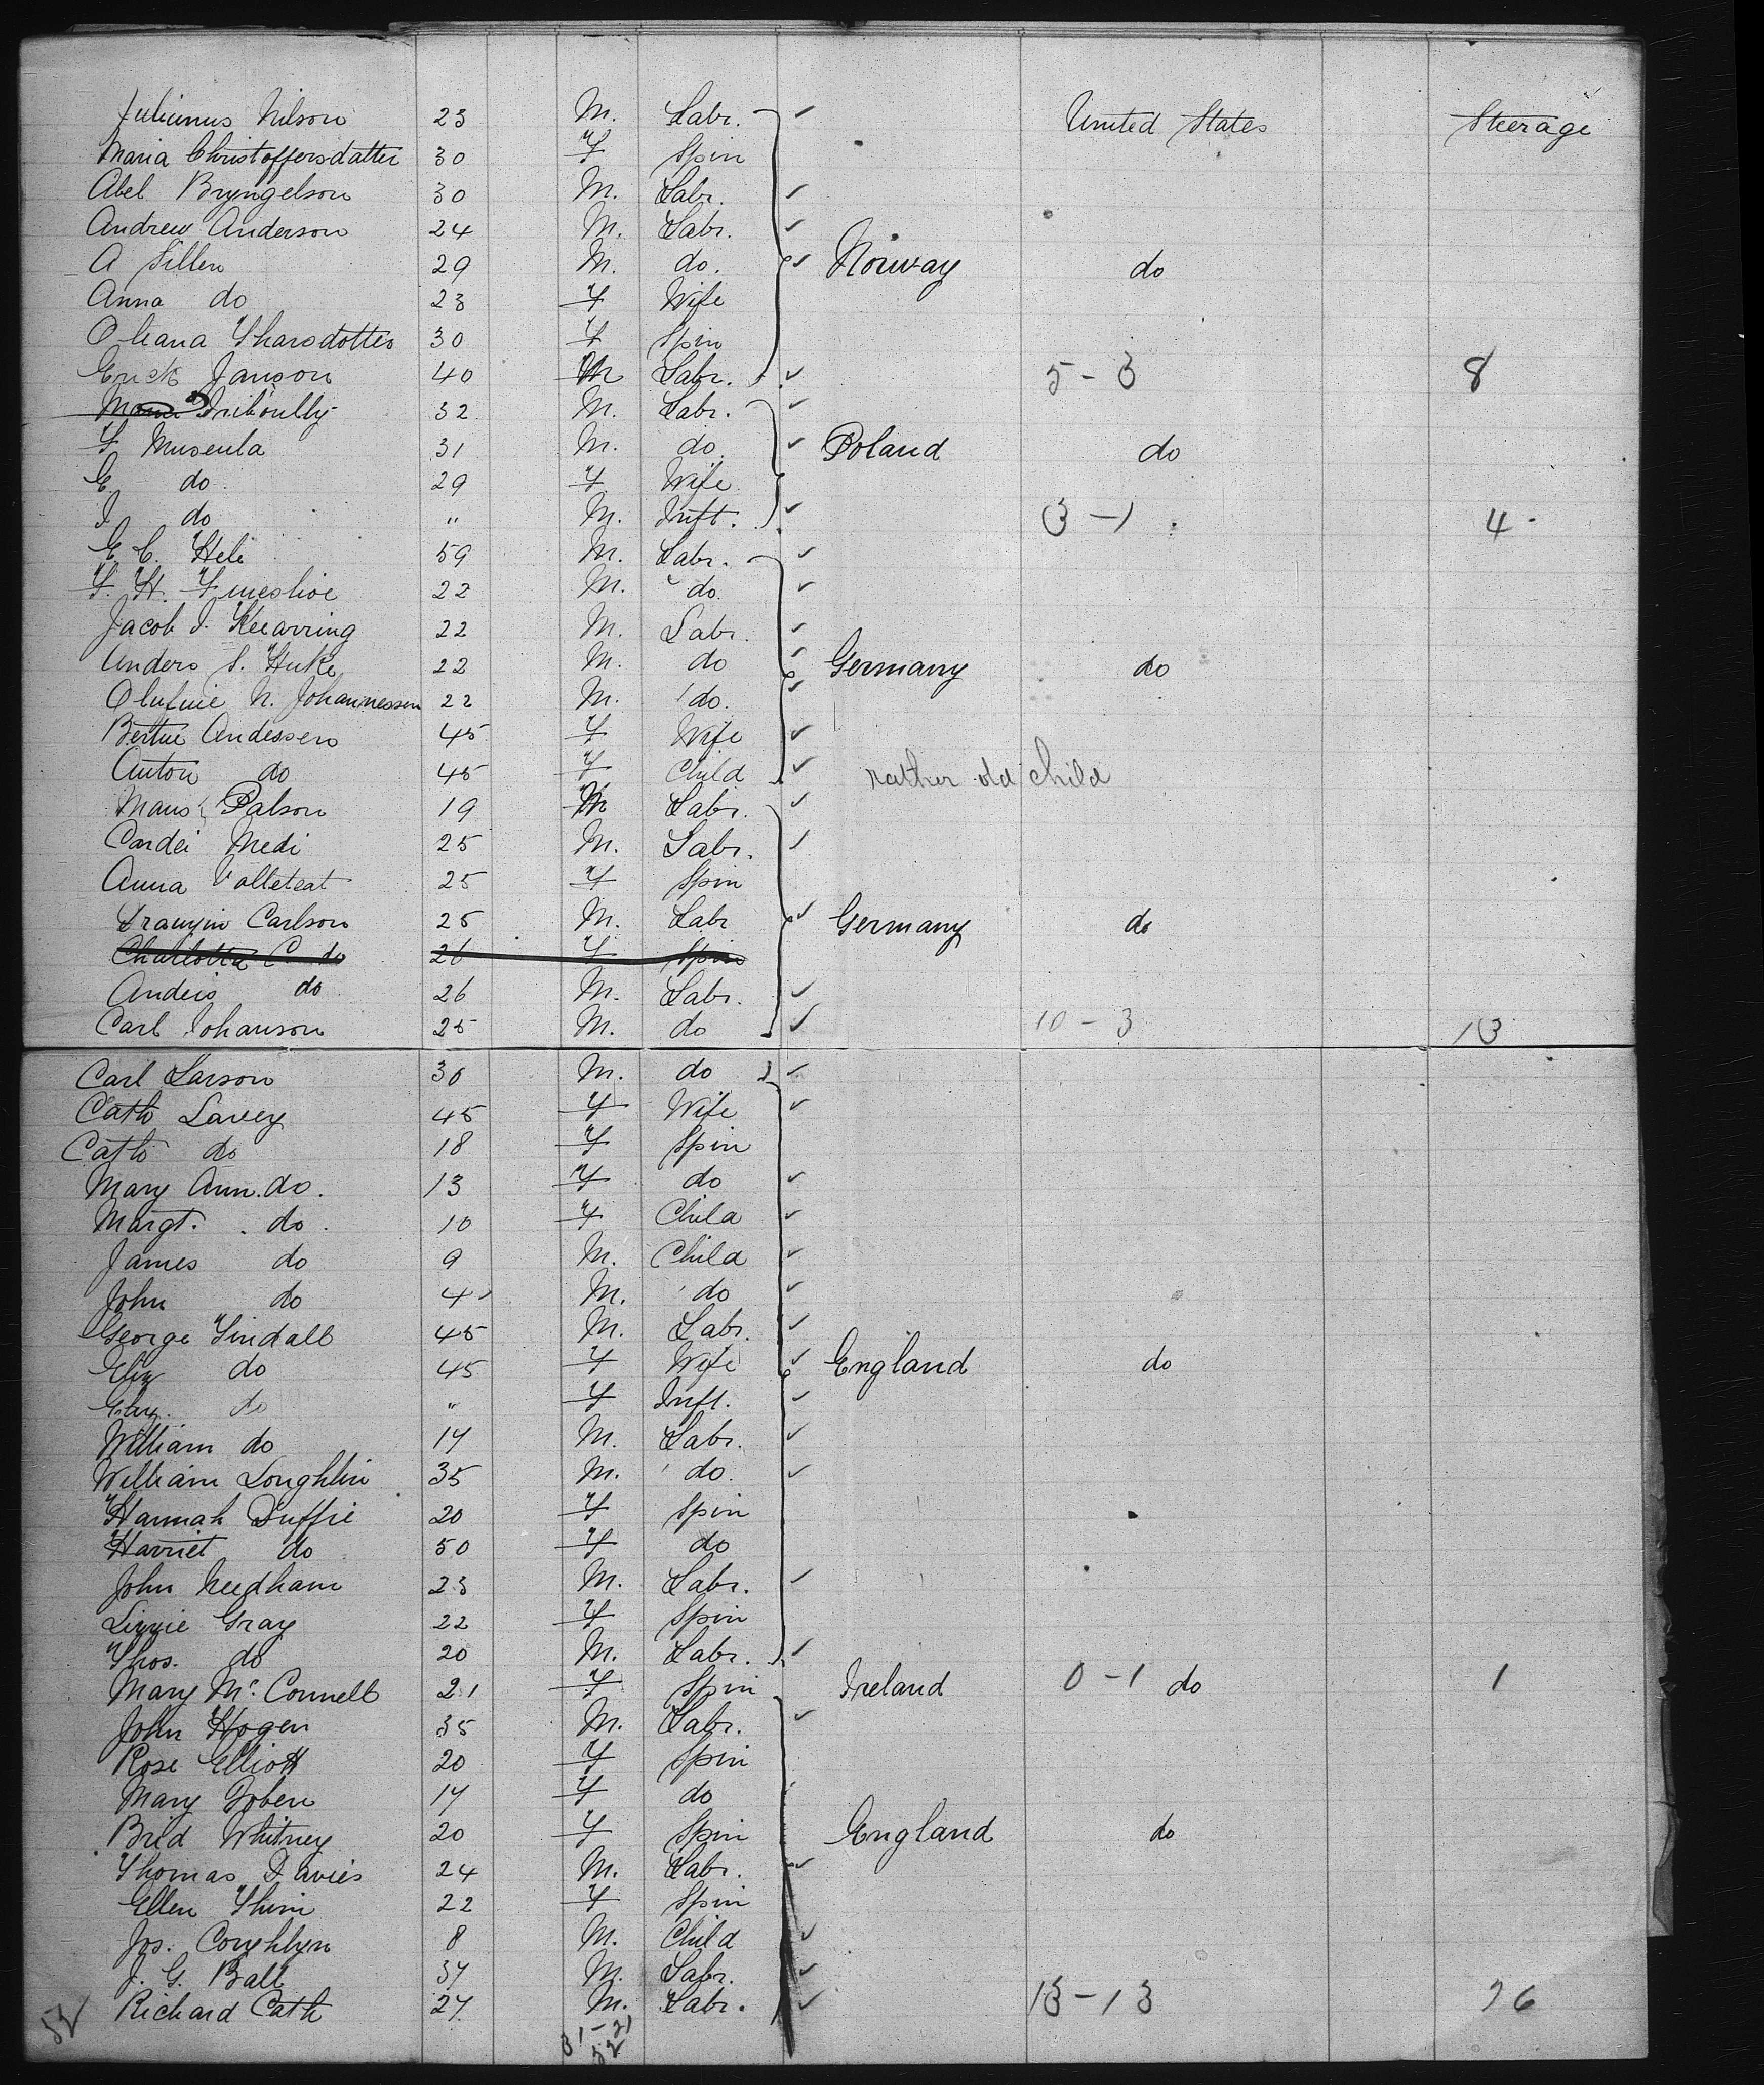 Julianus Nilson 23 M. Labr. United States Steerage
Maria Christoffersdatter 30 F Spin
Abel Bryngelson 30 M. Labr.
Andrew Anderson 24 M. Labr.
A Sillen 29 M. do. Norway do
Anna do 23 F Wife
Oleana Tharsdotter 30 F Spin
Erick Janson 40 M Labr. 5-3 8
32 M. Labr.
F Muscula 31 M. do. Poland do
E do 29 F Wife
I do " M. Inft. 3-1 4
E C. Hele 59 M. Labr.
F. H. 22 M. do.
Jacob I. 22 M. Labr.
Anders S. Huke 22 M. do Germany do
N. Johannessen 22 M. do.
Bertue Andessen 45 F Wife
Anton do 45 F Child rather old child
Mans Palson 19 M Labr.
Cardei Medi 25 M. Labr.
Anna Volleteat 25 F Spin
Carlson 25 M. Labr Germany do
Charlotta C. do 26 F Spin
Anders do 26 M. Labr.
Carl Johanson 25 M. do 10-3 13
Carl Larson 36 M. do
Cath Lavey 45 F Wife
Cath do 18 F Spin
Mary Ann. do. 13 F do
Margt. do. 10 F Child
James do 9 M. Child
John do 4 M. do
George Tindall 45 M. Labr.
Eliz do 45 F Wife England do
Eliz. do " F Inft.
William do 17 M. Labr.
William Loughlin 35 M. do.
Hannah Duffie 20 F Spin
Harriet do 50 F do
John Needham 23 M. Labr.
Lizzie Gray 22 F Spin
Thos. do 20 M. Labr.
Mary Mc. Connell 21 F Spin Ireland 0-1 do 1
John Hogen 35 M. Labr.
Rose Elliott 20 F Spin
Mary Doben 17 F do
Brid Whitney 20 F Spin England do
Thomas Davies 24 M. Labr.
Ellen Thim 22 F Spin
Jos. Coughlyn 8 M. Child
J. G. Ball 37 M. Labr.
Richard Cath 27. M. Labr. 13-13 26
52 31-21
52